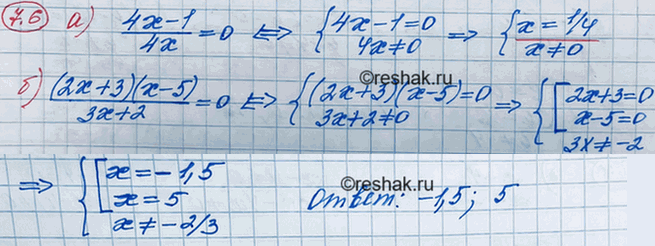 7.6 а) (4x-1)/(4x) = 0 ⟺ { 4x-1=0; 4x≠0 ⟹ { x=1/4; x≠0
©reshak.ru
б) ((2x+3)(x-5))/(3x+2) = 0 ⟺ { (2x+3)(x-5)=0; 3x+2≠0 ⟹ { [ 2x+3=0; x-5=0; 3x≠-2
⟹ { [ x=-1,5; x=5; x≠-2/3
©reshak.ru
Ответ: -1,5; 5